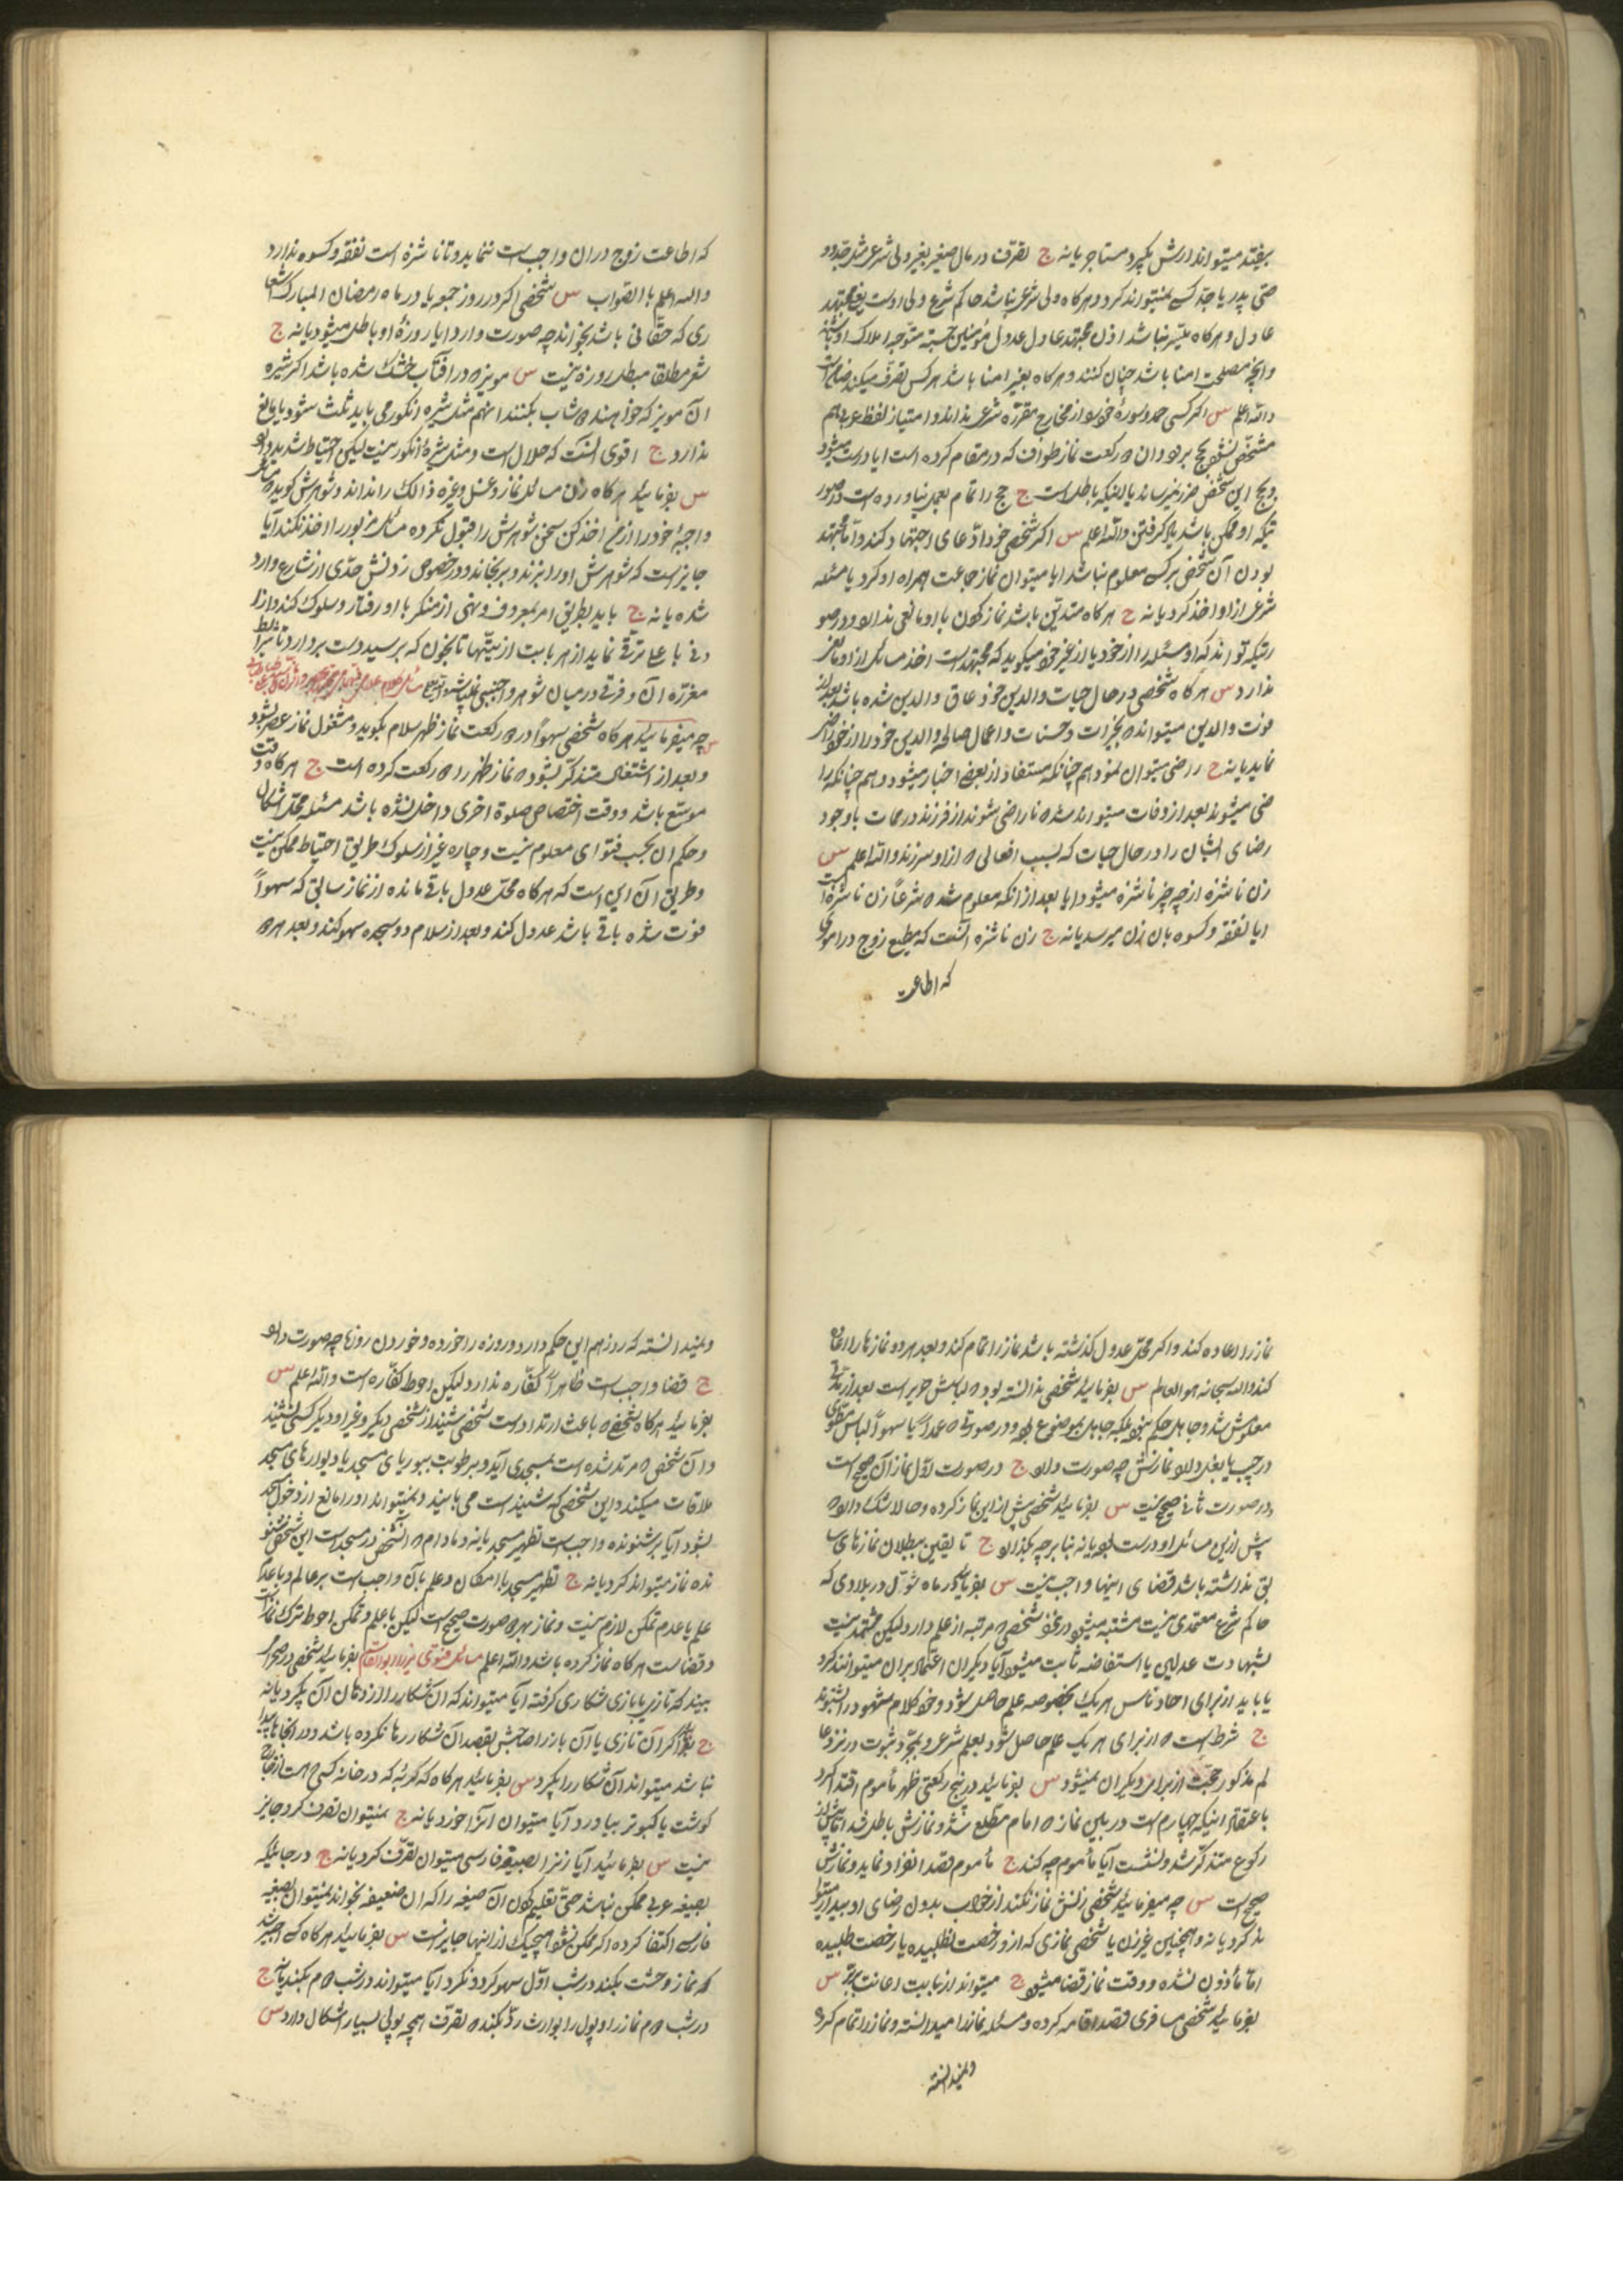 بیفتد میتواند ارش بگیرد مستاجر یا نه ج تصرف در مال صغیر بغیر ولی شرعی مثل جد و
حتی پدر یا جد کسی نمیتواند کرد و هرکاه ولی شرعی نباشد حاکم شرع ولی اوست یعنی مجتهد
عادل و هرکاه میسر نباشد اذن مجتهد عادل عدول مؤمنین حسبة متوجه املاک او باشند
و انچه مصلحت امنا باشد چنان کنند و هرکاه بغیر امنا باشد هر کس تصرف میکند ضامن است
والله اعلم س اکر کسی حمد و سورهٔ خود را از مخارج مقرره شرعی نداند و امتیاز لفظ عرب هم
مشخص نشود حج برود و آن ۲ رکعت نماز طواف که در مقام کرده است ایا درست میشود
و بحج این شخص ضرر میرساند یا اینکه باطل است ج حج را تمام بعمل نیاورده است و در صور
تیکه او ممکن باشد یاد کرفتن والله اعلم س اکر شخصی خود ادعای اجتهاد کند و اما مجتهد
بودن آن شخص بر کسی معلوم نباشد ایا میتوان نماز جماعت همراه او کرد یا مسئله
شرعی از او اخذ کرد یا نه ج هرکاه متدین باشد نماز کردن با او مانعی ندارد و در صو
رتیکه تواند که او مسئله را از خود یا از غیر خود میکوید که مجتهد است اخذ مسائل از او مانعی
ندارد س هرکاه شخصی در حال حیات والدین خود عاق والدین شده باشد بعد از
فوت والدین میتواند ۲ بخیرات و حسنات و اعمال صالحه والدین خود را از خود راضی
نماید یا نه ج راضی میتوان نمود هم چنانکه مستفاد از بعضی اخبار میشود و هم چنانکه را
ضی میشوند بعد از وفات میتواند شد ۲ ناراضی شوند از فرزند در ممات باوجود
رضای ایشان را در حال حیات که بسبب افعالی ۲ از او سر زند والله اعلم س
زن ناشزه از چه چیز ناشزه میشود و ایا بعد از انکه معلوم شد ۲ شرعاً زن ناشزه است
ایا نفقه و کسوه بان زن میرسد یا نه ج زن ناشزه آنست که مطیع زوج در اموری
که اطاعت
که اطاعت زوج در ان واجب است ننماید و تا ناشزه است نفقه و کسوه ندارد
والله اعلم بالصواب س شخصی اکر در روز جمعه یا در ماه رمضان المبارک اشعا
ری که حقانی باشد بخواند چه صورت دارد ایا روزهٔ او باطل میشود یا نه ج
شعر مطلقا مبطل روزه نیست س مویز ۲ در آفتاب خشک شده باشد اکر شیره
آن مویز که خواهند ۲ شاب بکنند انهم مثل شیره انکور می باید ثلث شود یا مانع
ندارد ج اقوی آنست که حلال است و مثل شیرهٔ انکور نیست لیکن احتیاط شدید دارد
س بفرمائید هرکاه زن مسائل نماز و غسل و غیره ذالک را نداند و شوهرش کوید ۲ مسائل
واجبهٔ خود را از من اخذ کن سخن شوهرش را قبول نکرده مسائل مزبور را اخذ نکند آیا
جایز است که شوهرش اورا بزند و برنجاند و در خصوص زدنش حدّی از شارع وارد
شده یا نه ج باید بطریق امر بمعروف و نهی از منکر با او رفتار و سلوک کند و از اد
نی با علی ترقی نماید از هر بابت از نیتها تا بخون که برسید دست بردارد تا شرایط
مقرّره آن و فرقی در میان شوهر و اجنبی نمیباشد
س چه میفرمائید هرکاه شخصی سهواً در ۲ رکعت نماز ظهر سلام بکوید و مشغول نماز عصر بشود
و بعد از اشتغال متذکر بشود ۲ نماز ظهر را ۲ رکعت کرده است ج هرکاه وقت
موسّع باشد و وقت اختصاص صلوة اخری داخل نشده باشد مسئله محل اشکال
و حکم ان بحسب فتوای معلوم نیست و چاره غیر از سلوک طریق احتیاط ممکن نیست
و طریق آن این است که هرکاه محل عدول باقی مانده از نماز سابق که سهواً
فوت شده باقی باشد عدول کند و بعد از سلام دو سجده سهو کند و بعد هر ۲
نماز را اعاده کند و اکر محل عدول کذشته باشد نماز را تمام کند و بعد هر دو نماز ها را اعاده
کند والله سبحانه هو العالم س بفرمائید شخصی ندانسته بود ۲ لباسش حریر است بعد از مدتی
معلومش شد و جاهل حکم نبود بلکه جاهل بموضوع بود و در صورتی ۲ عمداً یا سهواً لباس
در جیب یا بغل دارد نمازش چه صورت دارد ج در صورت اول نماز آن صحیح است
و در صورت ثانی صحیح نیست س بفرمائید شخصی پیش از این نماز کرده و حالا شک دارد ۲
پیش از این مسائل او درست بود یا نه بنا بر چه بکذارد ج تا یقین ببطلان نمازهای سا
بق نداشته باشد قضای اینها واجب نیست س بفرمائید در ماه شوال در بلادی که
حاکم شرع معتمدی نیست مشتبه میشود در نحو شخصی ۲ مرتبه از علم دارد لیکن مجتهد نیست
بشهادت عدلین یا استفاضه ثابت میشود آیا دیکران اعتماد بران میتوانند کرد
یا باید از برای احاد ناس هر یک بخصوصه علم حاصل شود و خود کلام مشهود را بشنوند
ج شرط است ۲ از برای هر یک علم حاصل شود بعلم شرعی و بمجرد ثبوت در نزد عا
لم مذکور حجت از برای دیکران نمیشود س بفرمائید در پنج رکعتی ظهر مأموم اقتدا کرد
باعتقاد اینکه چهارم است در بین نماز ۲ امام مطلع شد و نمازش باطل شد اما پیش از
رکوع متذکر شد و نشست آیا مأموم چه کند ج مأموم قصد انفراد نماید و نمازش
صحیح است س چه میفرمائید شخصی زنش نماز نکند از خواب بدون رضای او بیدار میتوا
ند کرد یا نه و همچنین غیر زن یا شخصی نمازی که از و رخصت نطلبیده یا رخصت طلبیده
اما مأذون نشده و وقت نماز قضا میشود ج میتواند از بابت اعانت بر بر س
بفرمائید شخصی مسافری قصد اقامه کرده و مسئله نماز را میدانسته و نماز را تمام کرد
و نمیدانسته
و نمیدانسته که روزه هم این حکم دارد و روزه را خورده و خوردن روزها چه صورت دارد
ج قضا واجب است ظاهراً کفّاره ندارد لیکن احوط کفّاره است والله اعلم س
بفرمائید هرکاه شخصی ۲ باعث ارتداد است شخصی شنید از شخصی دیکر و غیر او دیکر کسی نشنید
و آن شخص ۲ مرتد شده است بمسجدی آید و برطوبت ببوریای مسجد یا دیوارهای مسجد
ملاقات میکند و این شخصی که شنیده است می بیند و نمیتواند او را مانع از دخول مسجد
بشود آیا بر شنونده واجب است تطهیر مسجد یا نه و مادام ۲ آنشخص در مسجد است این شخص شنو
نده نماز میتواند کرد یا نه ج تطهیر مسجد با امکان و علم بآن واجب است بر عالم و با عدم
علم یا عدم تمکن لازم نیست و نماز بهر ۲ صورت صحیح است لیکن با علم و تمکن احوط ترک نماز است
و قضاست هرکاه نماز کرده باشد والله اعلم مسائل فتوی میرزا ابوالقاسم بفرمائید شخصی در صحرا
بیند که تازی یا بازی شکاری کرفته آیا میتواند که ان شکار را از دهان آن بکیرد یا نه
ج بلی اکر آن تازی یا آن باز را صاحبش بقصد آن شکار رها نکرده باشد و در انجا ها پیدا
نباشد میتواند آن شکار را بکیرد س بفرمائید هرکاه که کربه که در خانه کسی است از خارج
کوشت یا کبوتر بیاورد آیا میتوان انرا خورد یا نه ج نمیتوان تصرف کرد و جایز
نیست س بفرمائید آیا زنرا بصیغه فارسی میتوان تصرّف کرد یا نه ج در جائیکه
بصیغه عربی ممکن نباشد حتّی تعلیم کردن آن صیغه را که ان ضعیفه بخواند میتوان بصیغه
فارسی اکتفا کرده اکر ممکن نشود هیچیک از اینها جایز است س بفرمائید هرکاه کسی اجیر شد
که نماز وحشت بکند در شب اوّل سهو کرد و نکرد آیا میتواند در شب ۲م بکند یا نه ج
در شب ۲م نماز را و پول را بوارث ردّ بکند ۲ تصرّف همچه پولی بسیار اشکال دارد س